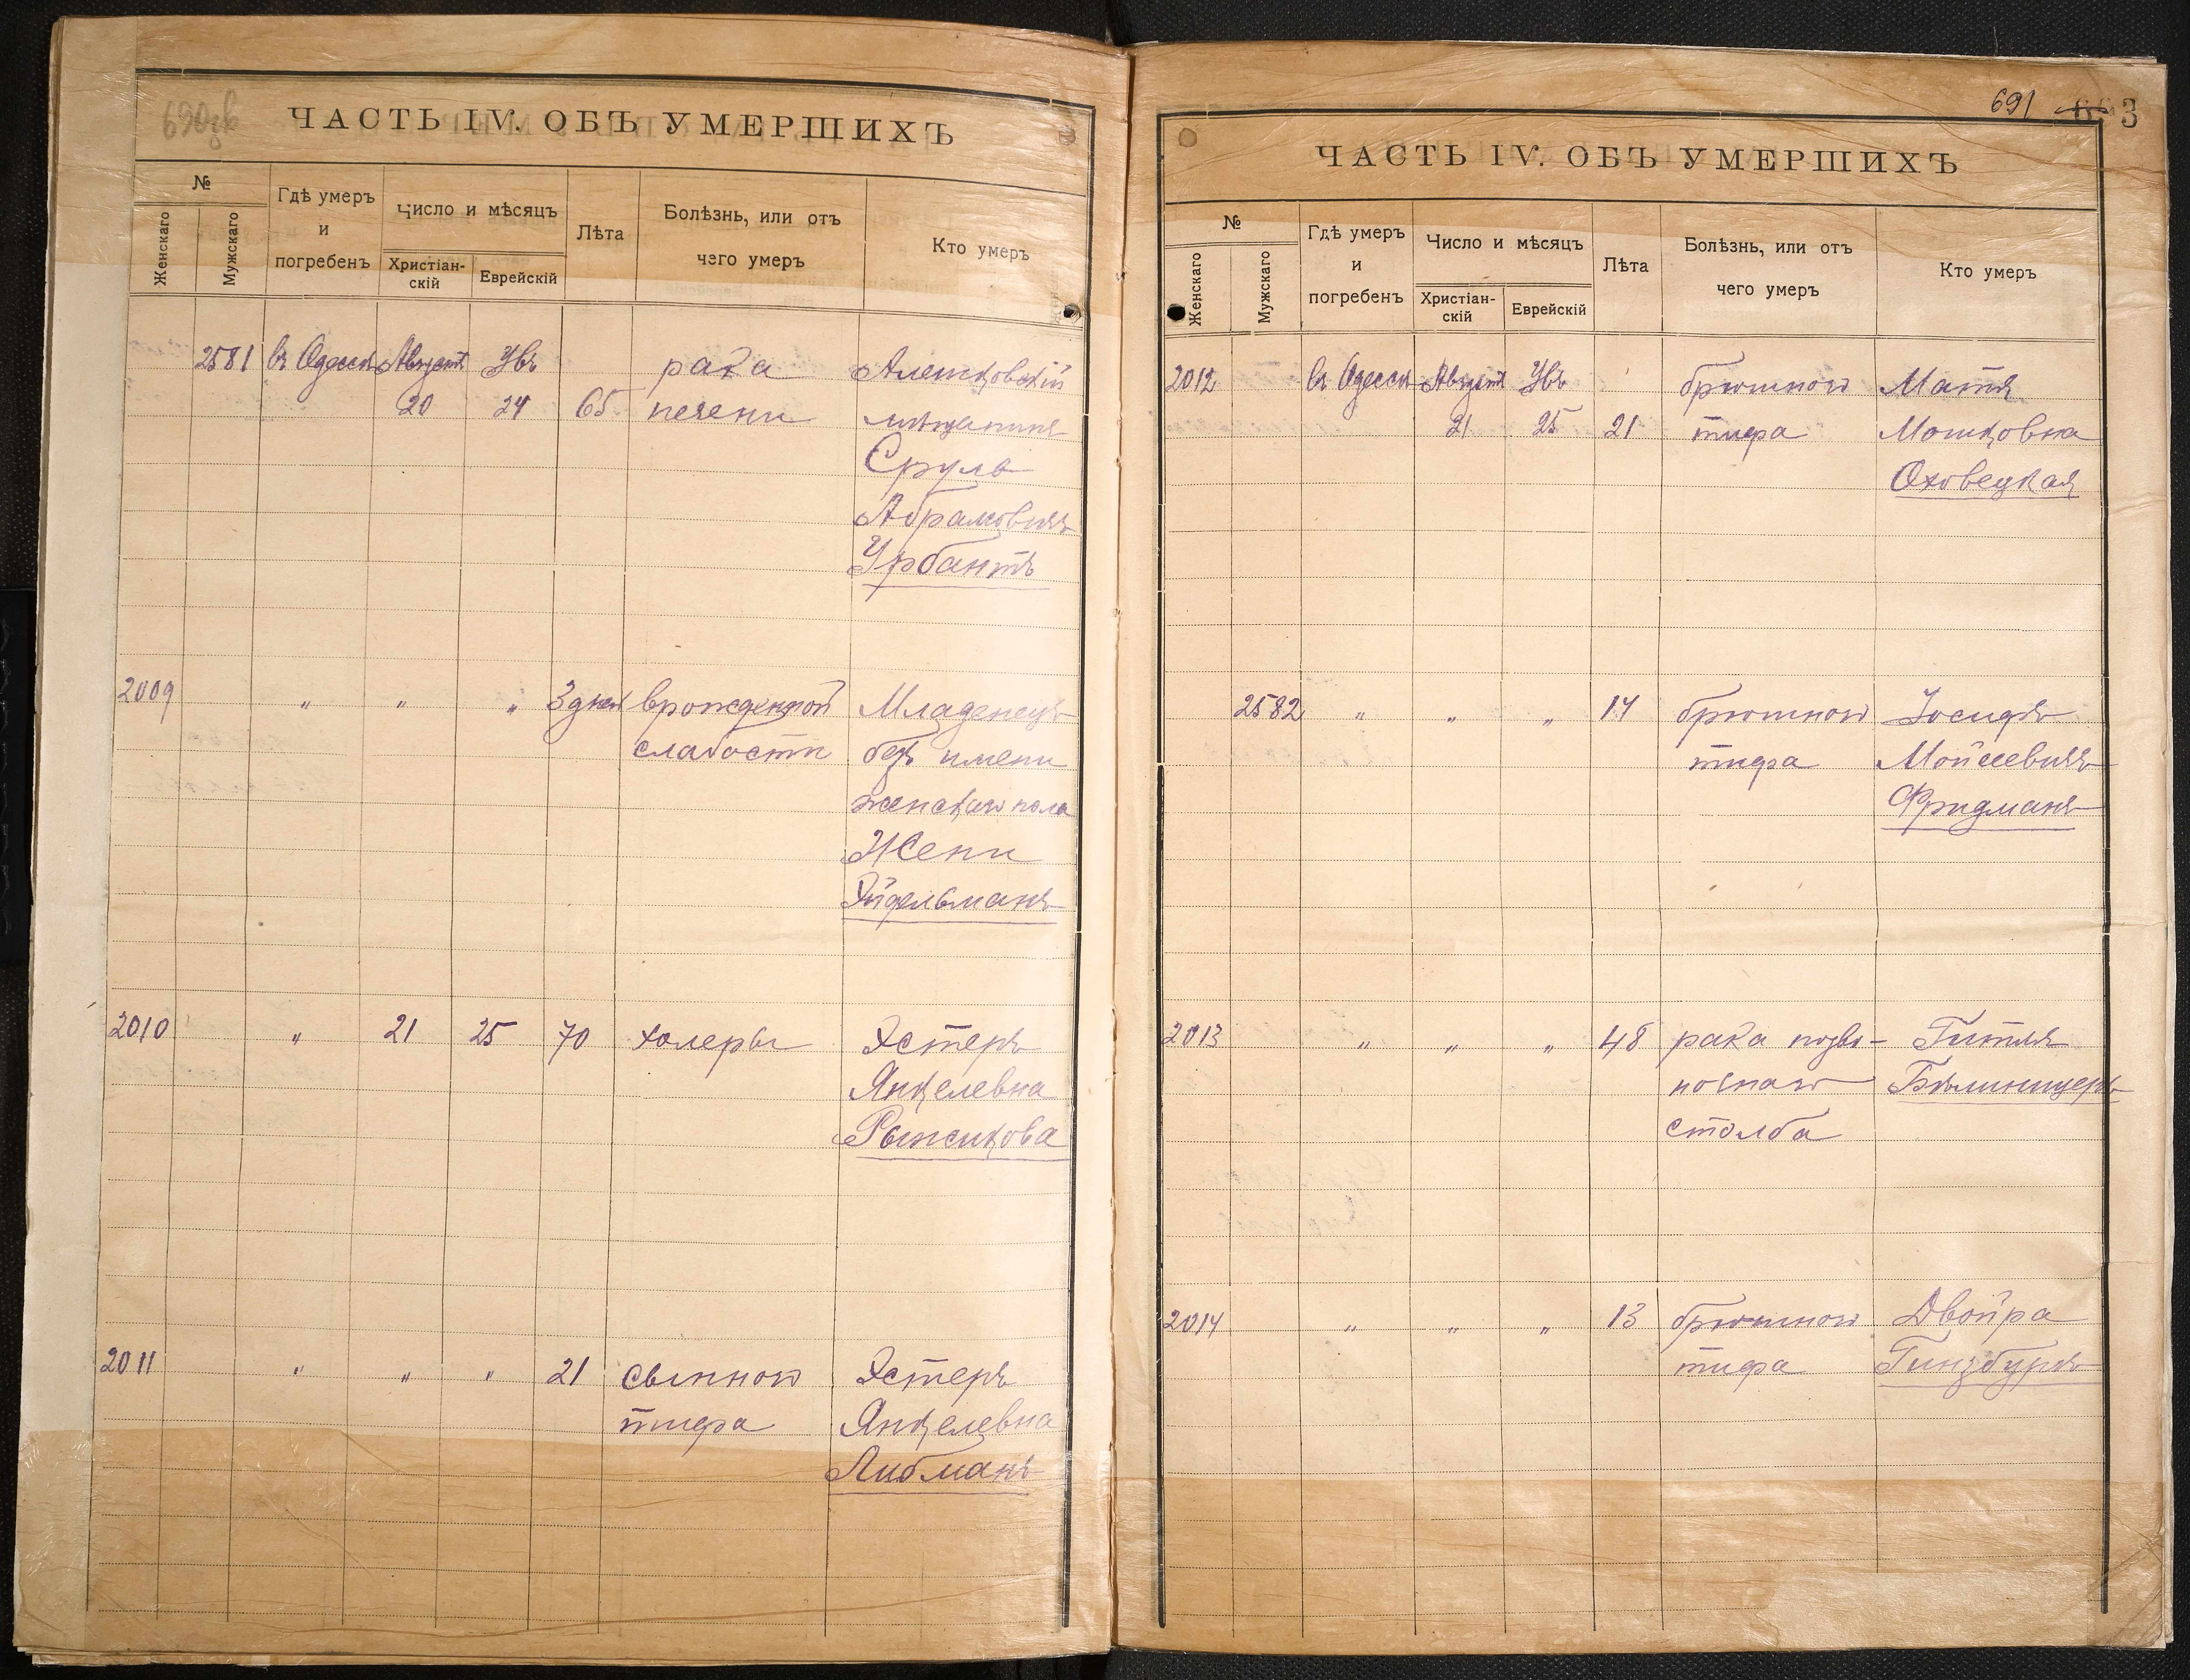 690 зв
ЧАСТЬ IV. ОБЪ УМЕРШИХЪ
№
Женскаго
Мужскаго
Гдѣ умеръ
и
погребенъ
Число и мѣсяцъ
Христіан-
скій
Еврейскій
Лѣта
Болѣзнь, или отъ
чего умеръ
Кто умеръ
2581 въ Одессѣ Августъ Увъ рака Алешковскій
20 24 65 печени мѣщанинъ
Сруль
Абрамовичъ
Урбантъ
2009 " " " 3 дней врожденной Младенецъ
слабости безъ имени
женскаго пола
Жени
Эйдельманъ
2010 " 21 25 70 холеры Эстеръ
Янкелевна
Рыжикова
2011 " " " 21 сыпного Эстеръ
тифа Янкелевна
Либманъ
691
3
ЧАСТЬ IV. ОБЪ УМЕРШИХЪ
№
Женскаго
Мужскаго
Гдѣ умеръ
и
погребенъ
Число и мѣсяцъ
Христіан-
скій
Еврейскій
Лѣта
Болѣзнь, или отъ
чего умеръ
Кто умеръ
2012 въ Одессѣ Августъ Увъ брюшного Матя
21 25 21 тифа Мошковна
Оховецкая
2582 " " " 14 брюшного Іосифъ
тифа Мойсеевичъ
Фридманъ
2013 " " " 48 рака позво- Гитля
ночнаго Бялиницеръ
столба
2014 " " " 13 брюшного Двойра
тифа Гинзбургъ